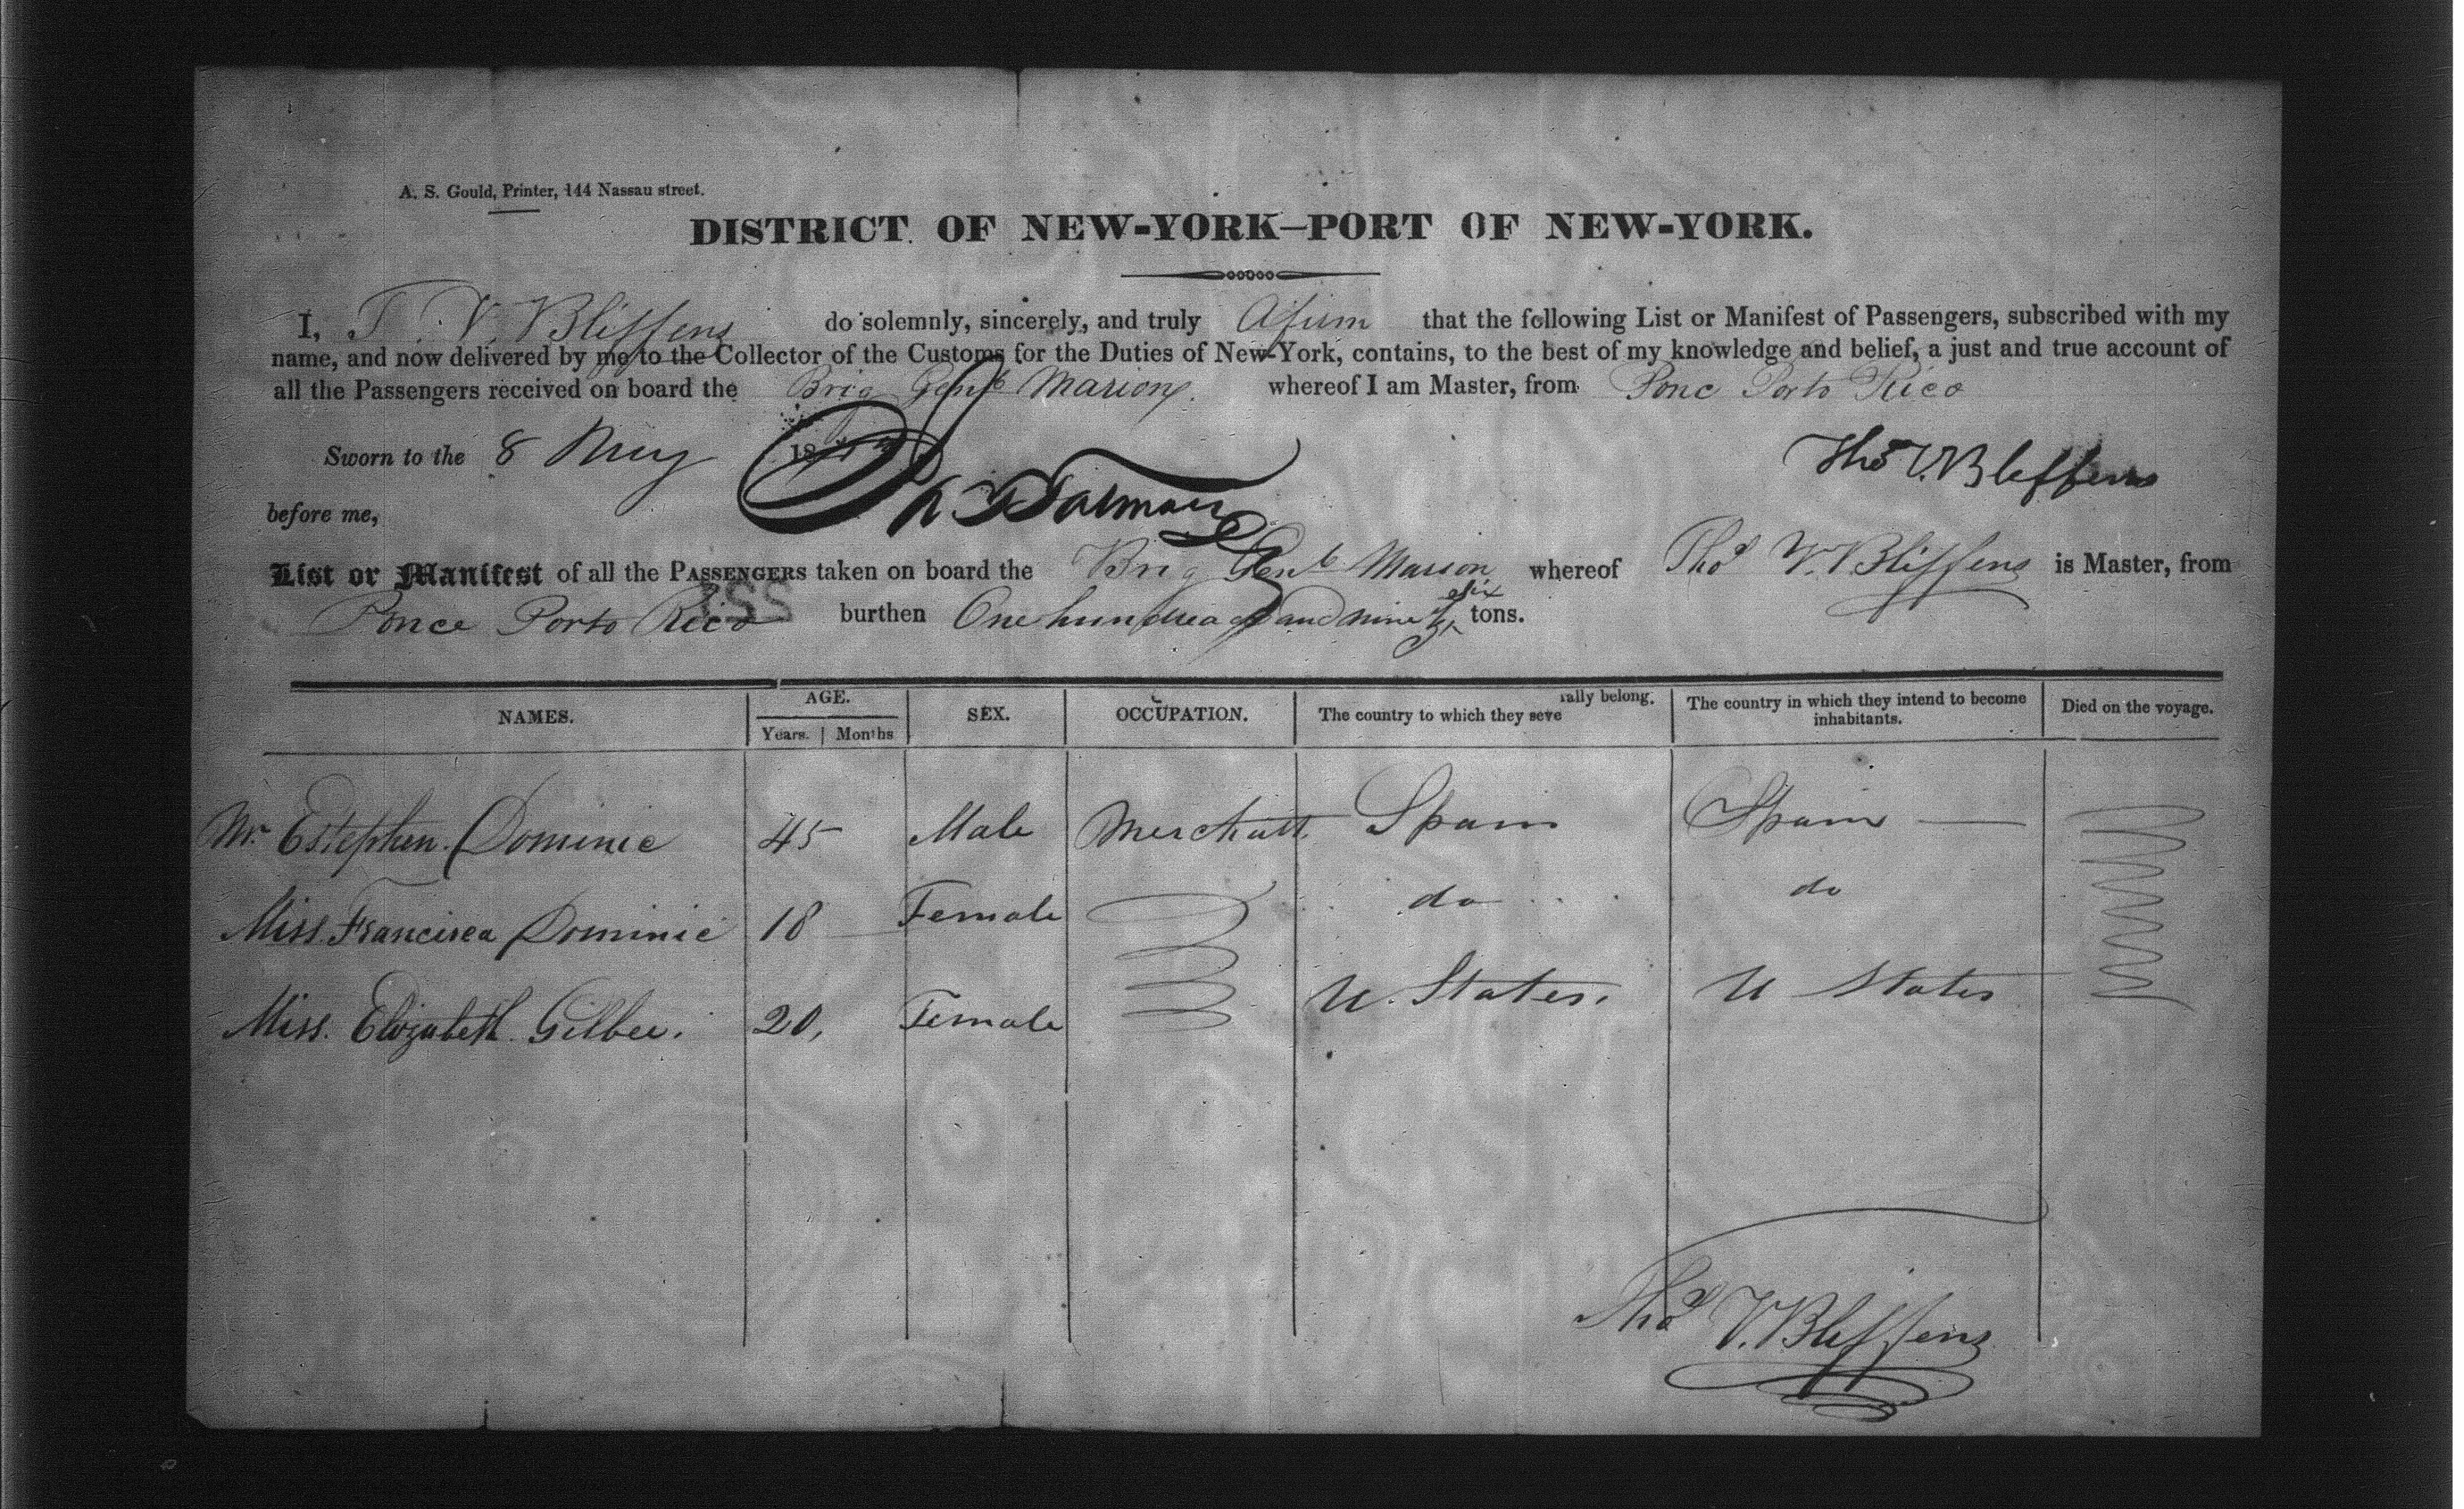 A. S. Gould, Printer, 144 Nassau street.
DISTRICT OF NEW-YORK—PORT OF NEW-YORK.
I, T. V. Bliffens do solemnly, sincerely, and truly Afirm that the following List or Manifest of Passengers, subscribed with my
name, and now delivered by me to the Collector of the Customs for the Duties of New-York, contains, to the best of my knowledge and belief, a just and true account of
all the Passengers received on board the Brig Genl Marion whereof I am Master, from Ponc Porto Rico
Sworn to the 8 May 18
Thos V. Bleffens
before me,
List or Manifest of all the PASSENGERS taken on board the Brig Genl Marion whereof Thos V. Bliffens is Master, from
Ponce Porto Rico burthen One hundred and ninety six tons.
NAMES. AGE. SEX. OCCUPATION. The country to which they severally belong. The country in which they intend to become inhabitants. Died on the voyage.
Years. Months
Mr Estephen Dominic 45 Male Merchatt Spain Spain
Miss Francisca Dominic 18 Female do do
Miss. Elizabeth Gilbee. 20, Female U. States. U States
Thos V. Bleffens